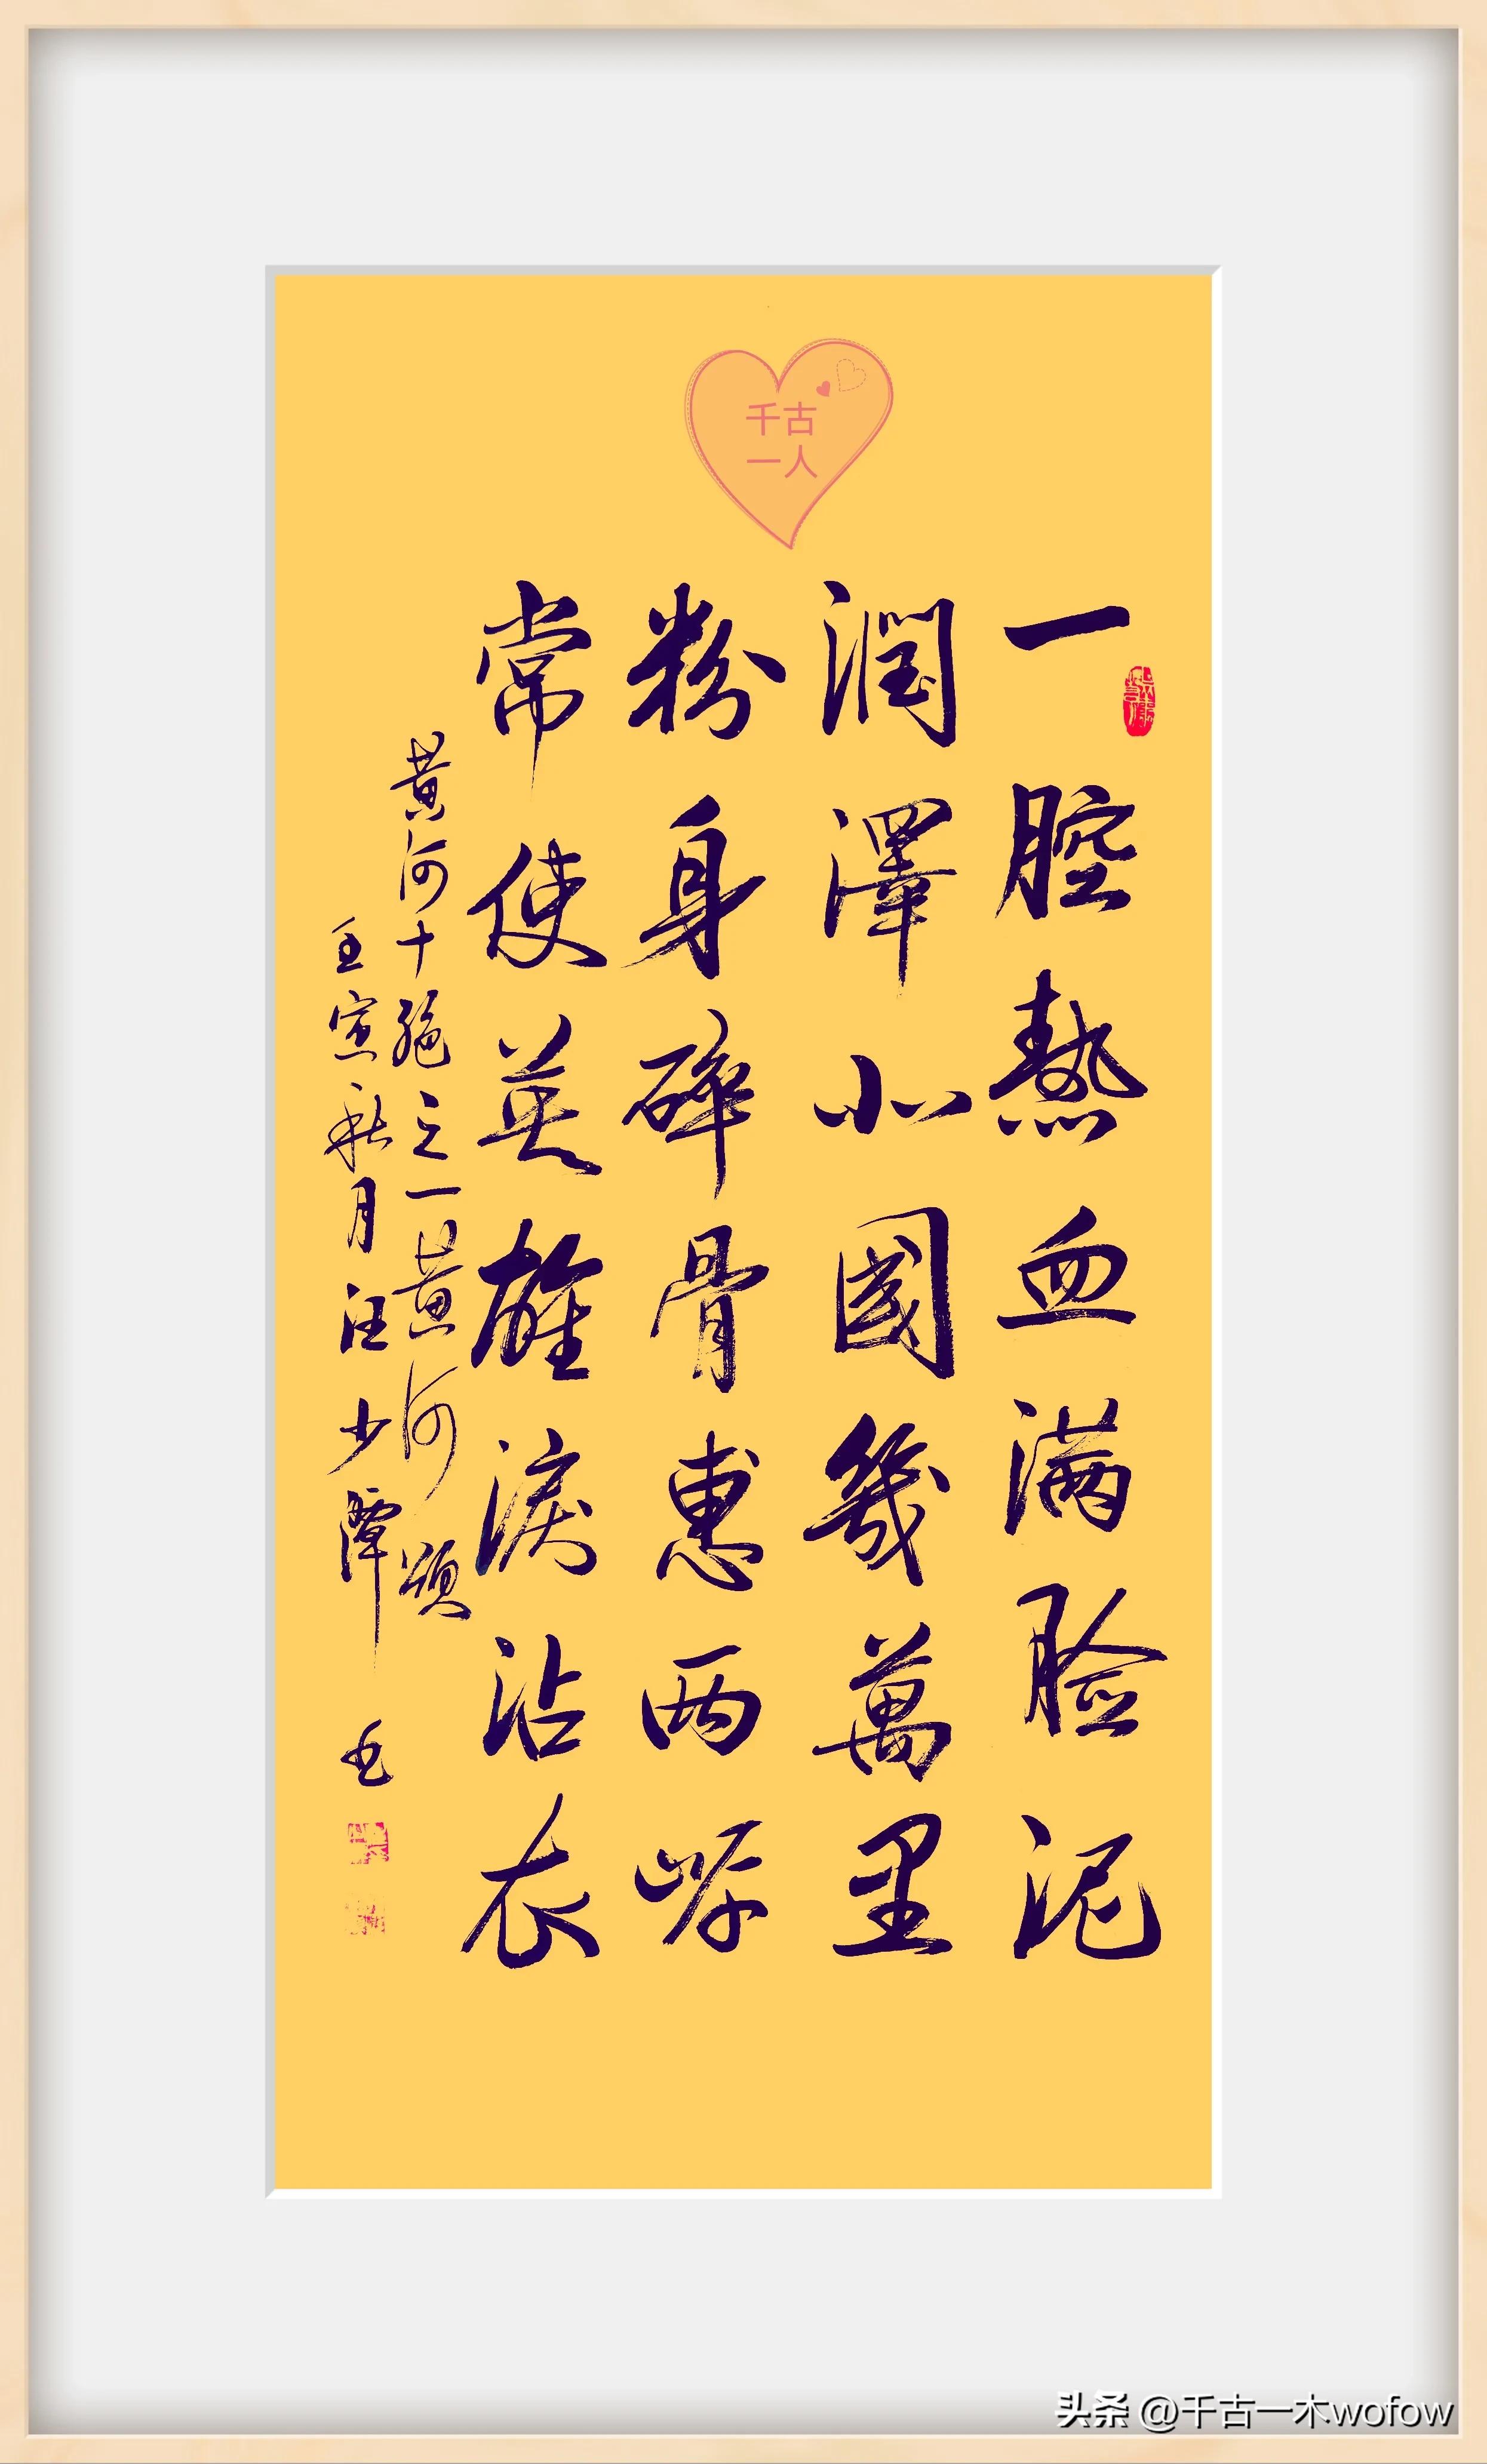 千古
一人
一腔熱血满脸泥
潤澤小國幾萬里
粉身碎骨惠两岸
常使英雄淚沾衣
黄河十绝之一黄河颂
壬寅秋月汪少潭书
头条 @千古一木wofow